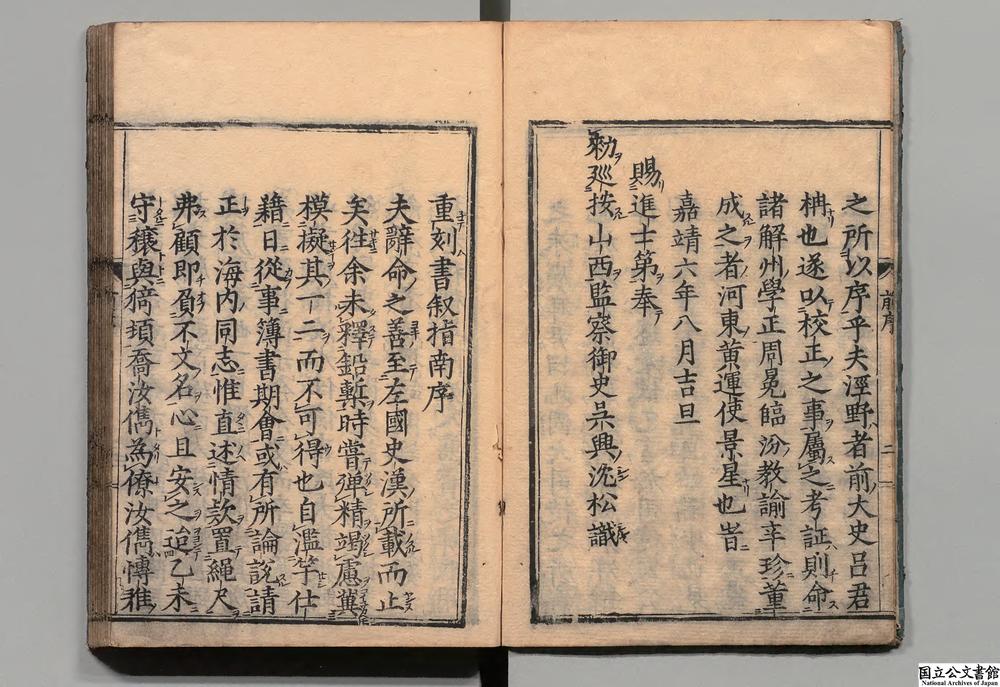 之所以序乎夫涇野者前大史呂君
柟也遂以校正之事屬之考証則命
諸解州學正周冕臨汾教諭辛珍董
成之者河東黃運使景星也旹
嘉靖六年八月吉旦
賜進士第奉
勑廵按山西監察御史吳興沈松識
前序
二
重刻書叙指南序
夫辭命之善至左國史漢所載而止
矣徃余未釋鉛槧時嘗弾精竭慮冀
模擬其一二而不可得也自濫竽仕
籍日從事簿書期會或有所論説請
正於海内同志惟直述情欵置繩尺
弗顧即負不文名心且安之迨乙未
守穣與猗頊喬汝儁為僚汝儁愽雅
国立公文書館
National Archives of Japan